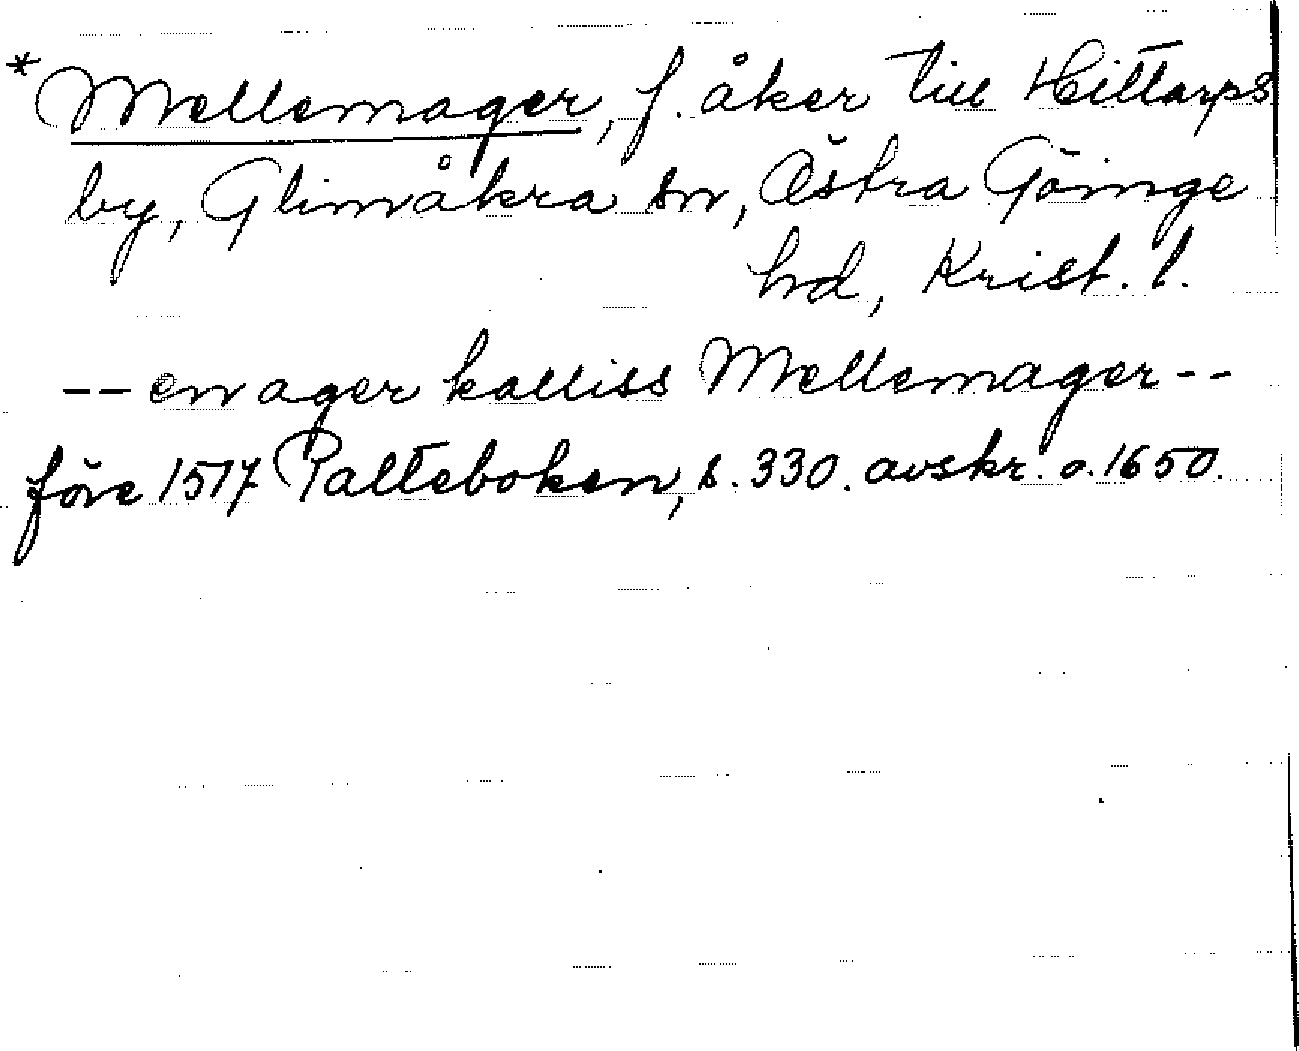 *Mellemager, f. åker till Hittarps
by, Glimåkra sn, Östra Göinge
hd, Krist. l.
-- en ager kalliss Mellemager --
före 1517 Palteboken, s. 330. avskr. o. 1650.